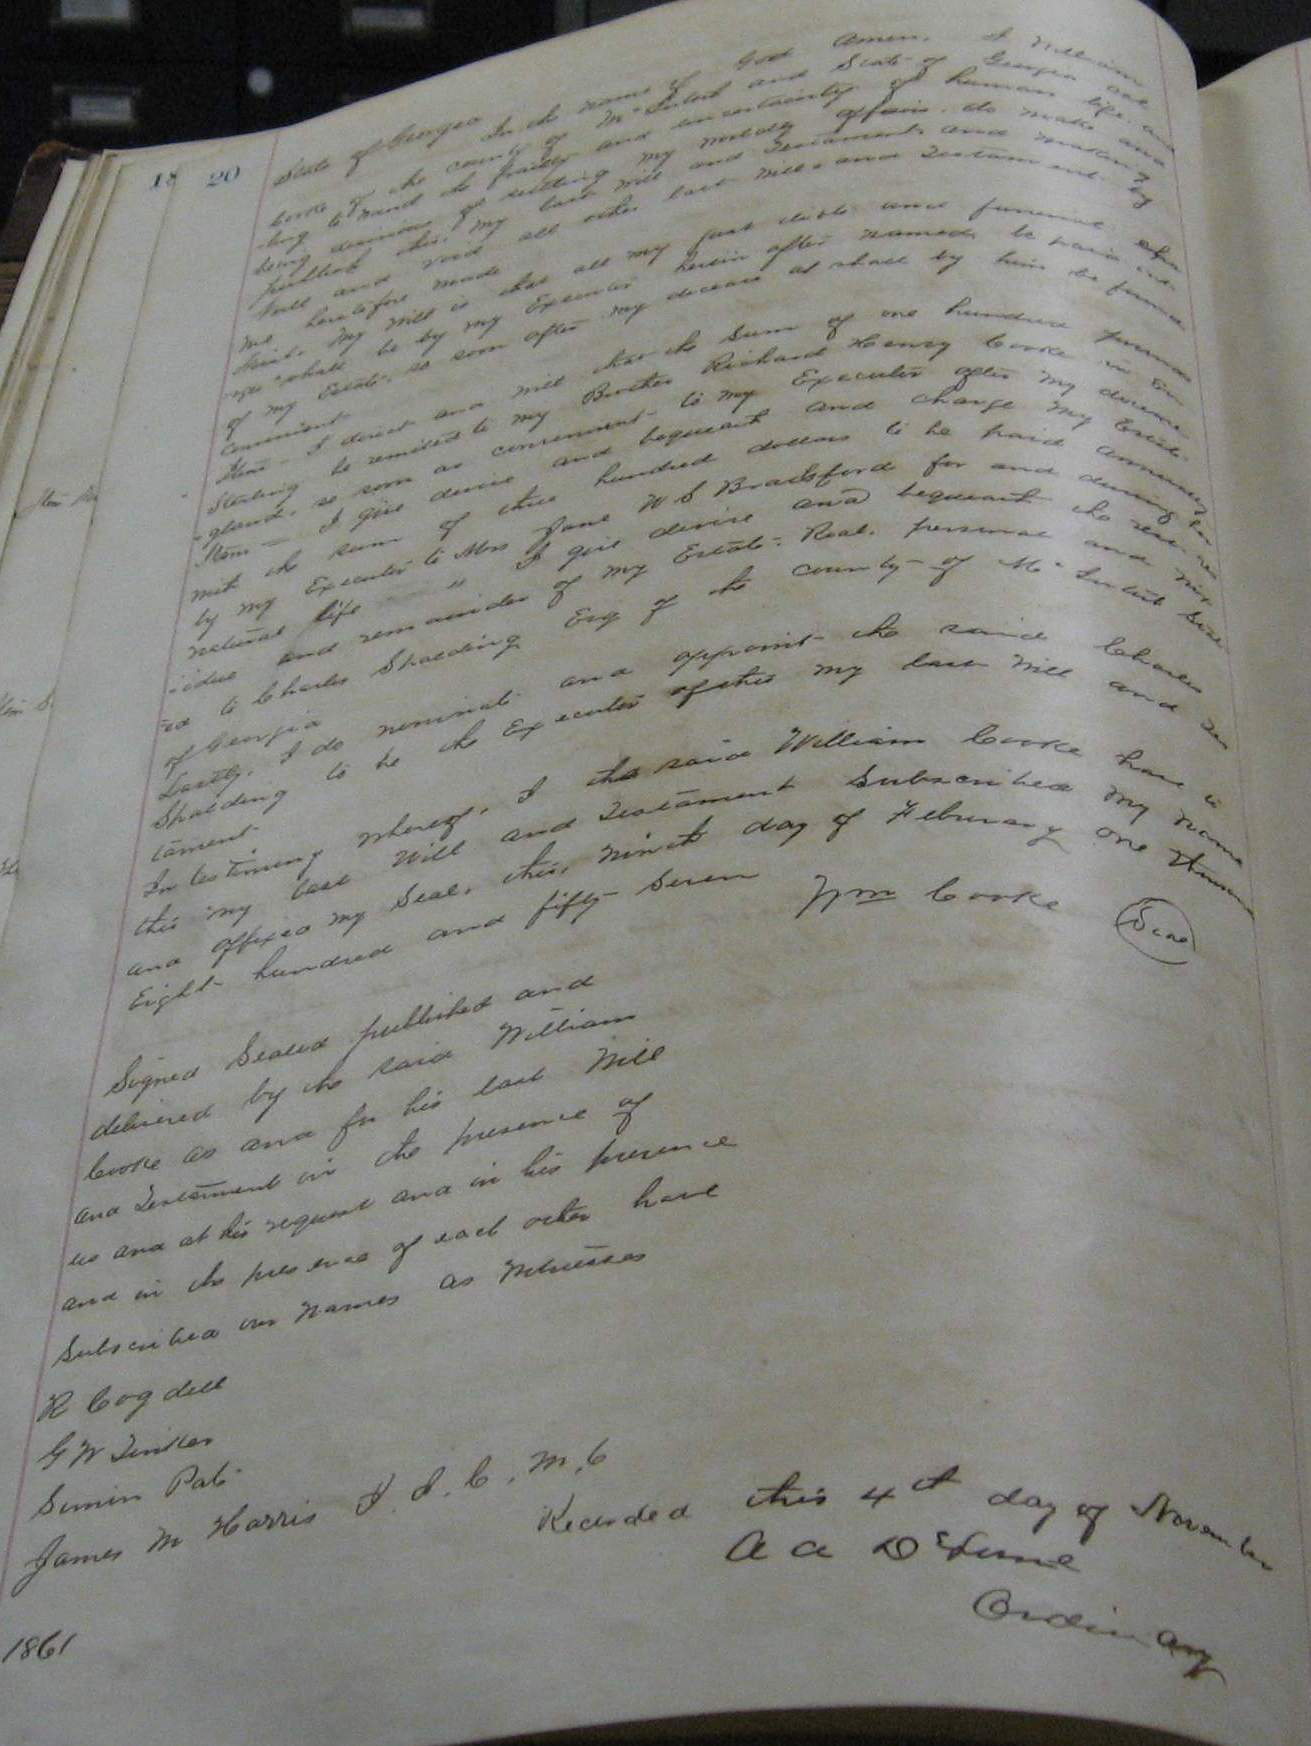 18 20
State of Georgia In the name of God Amen. I William
Cooke of the county of McIntosh and State of Georgia
-ling to mind the frailty and uncertainty of human life, and
being desirous of settling my worldly affairs do make and
publish this my last will and Testament and making
null and void all other last wills and Testaments by
me heretofore made
First. My will is that all my just debts and funeral expen
shall be by my Executor herein after named, be paid out
of my Estate, so soon after my decease as shall by him be found
convenient
Item - I direct and will that the Sum of one hundred pounds
Sterling be remitted to my Brother Richard Henry Cooke in En
-gland, so soon as convenient to my Executor after my decease
Item - I give devise and bequeath and charge my Estate
with the sum of three hundred dollars to be paid annually
by my Executor to Mrs Jane W S Bradsford for and during her
natural life " I give devise and bequeath the rest, res
-idue and remainder of my Estate. Real. personal and mix
-ed to Charles Spalding Esq of the county of McIntosh State
of Georgia
Lastly. I do nominate and appoint the said Charles
Spalding to be the Executor of this my last Will and Tes
tament
In testimony whereof, I the said William Cooke have to
this my last Will and Testament Subscribed my name
and affixed my Seal, this, ninth day of February one thousand
Eight hundred and fifty seven
Wm Cooke Seal
Signed Sealed published and
delivered by the said William
Cooke as and for his last Will
and Testament in the presence of
us and at his request and in his presence
and in the presence of each other have
Subscribed our names as Witnesses
R Cogdell
G W
James M Harris J. I. C. M. C
Recorded this 4th day of November
1861
A A DeLorme
Ordinary